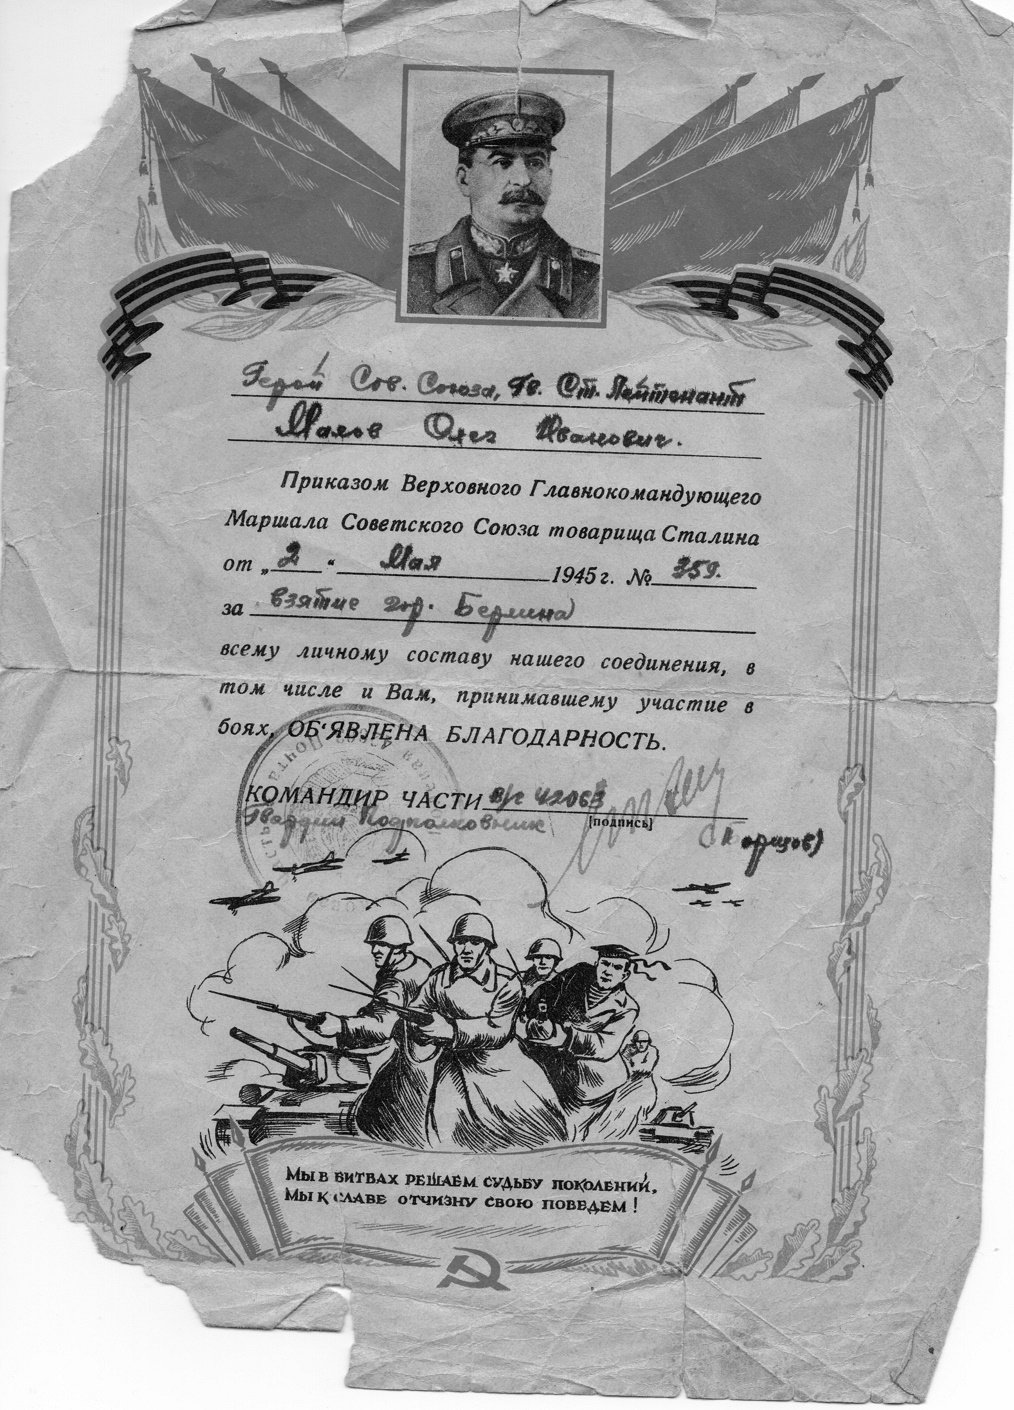 Герой Сов. Союза, Гв. Ст. Лейтенант
Малов Олег Иванович.
Приказом Верховного Главнокомандующего
Маршала Советского Союза товарища Сталина
от „2“ Мая 1945 г. № 359.
за взятие гор. Берлина
всему личному составу нашего соединения, в
том числе и Вам, принимавшему участие в
боях, ОБ'ЯВЛЕНА БЛАГОДАРНОСТЬ.
КОМАНДИР ЧАСТИ в/ч 42063
Гвардии Подполковник [подпись]
МЫ В БИТВАХ РЕШАЕМ СУДЬБУ ПОКОЛЕНИЙ,
МЫ К СЛАВЕ ОТЧИЗНУ СВОЮ ПОВЕДЕМ!